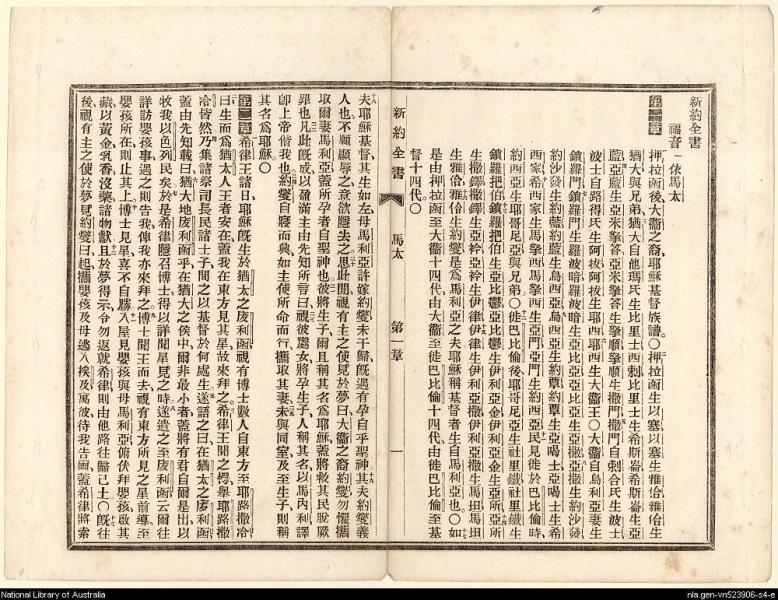 新約全書
福音一依馬太
第一章 押拉函後大衞之裔耶穌基督族譜○押拉函生以塞以塞生雅佮雅佮生
猶大與兄弟猶大自他瑪氏生比里士西剌比里士生希斯崙希斯崙生亞
藍亞藍生亞米拏答亞米拏答生拏順拏順生撒門撒門自剌合氏生波士
波士自路得氏生阿拔阿拔生耶西耶西生大衞王○大衞自烏利亞妻生
鎖羅門鎖羅門生羅波暗羅波暗生亞比亞亞比亞生亞撒亞撒生約沙發
約沙發生約藍約藍生烏西亞烏西亞生約覃約覃生亞喝士亞喝士生希
西家希西家生馬拏西馬拏西生亞門亞門生約西亞民見徙於巴比倫時
約西亞生耶哥尼亞與兄弟○徙巴比倫後耶哥尼亞生社里鐵社里鐵生
鎖羅把伯鎖羅把伯生亞比鬱亞比鬱生伊利亞金伊利亞金生亞所亞所
生撒鐸撒鐸生亞衿亞衿生伊律伊律生伊利亞撒伊利亞撒生馬坦馬坦
生雅佮雅佮生約瑟是爲馬利亞之夫耶穌稱基督者生自馬利亞也○如
是由押拉函至大衞十四代由大衞至徙巴比倫十四代由徙巴比倫至基
督十四代○
新約全書 馬太 第一章 一
夫耶穌基督其生如左母馬利亞許嫁約瑟未于歸旣遇有孕自乎聖神其夫約瑟義
人也不願顯辱之意欲隱去之思此閒視有主之使見於夢曰大衞之裔約瑟勿懼攜
取爾妻馬利亞蓋所孕者自聖神也彼將生子爾且稱其名爲耶穌蓋將救其民脫厥
罪也凡此旣成以盈滿主由先知所言曰視彼處女將孕生子人稱其名以馬內利譯
卽上帝偕我也約瑟自寢而興如主使所命而行攜取其妻未與同室及至生子則稱
其名爲耶穌○
第二章 希律王諸日耶穌旣生於猶太之庋利函視有博士數人自東方至耶路撒冷
曰生而爲猶太人王者安在蓋我在東方見其星故來拜之希律王聞之愕舉耶路撒
冷皆然乃集諸祭司長民諸士子問之以基督於何處生遂語之曰在猶太之庋利函
蓋由先知載曰猶大地庋利函乎在猶大之侯中爾非最小者蓋將有君自爾是出以
牧我以色列民矣於是希律隱召博士得以詳聞星見之時遂遣之至庋利函云爾往
詳訪嬰孩事遇之則告我俾我亦來拜之博士聞王而去視有東方所見之星前導至
嬰孩所在則止其上博士見星喜不自勝入屋見嬰孩與母馬利亞俯伏拜嬰孩啟其
藏以黃金乳香沒藥諸物獻且於夢得示令勿返就希律則由他路往歸己土○旣往
後視有主之使於夢見約瑟曰起攜嬰孩及母逃入埃及寓彼待我告爾蓋希律將索
National Library of Australia
nla.gen-vn523906-s4-e